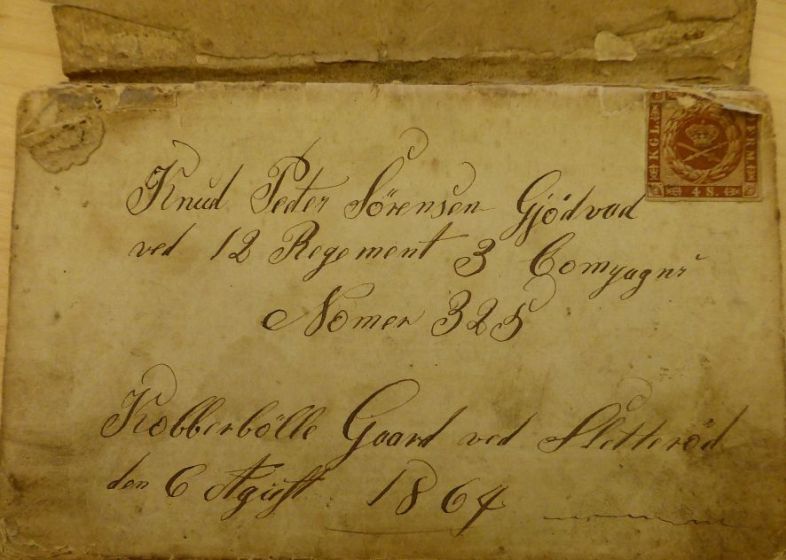 KGL FRM
4 S.
Knud Peder Sørensen Gjödvad
ved 12 Regement 3 Compagni
Nomer 325
Kobberbölle Gaard ved Sletteröd
den 6 Agust 1864